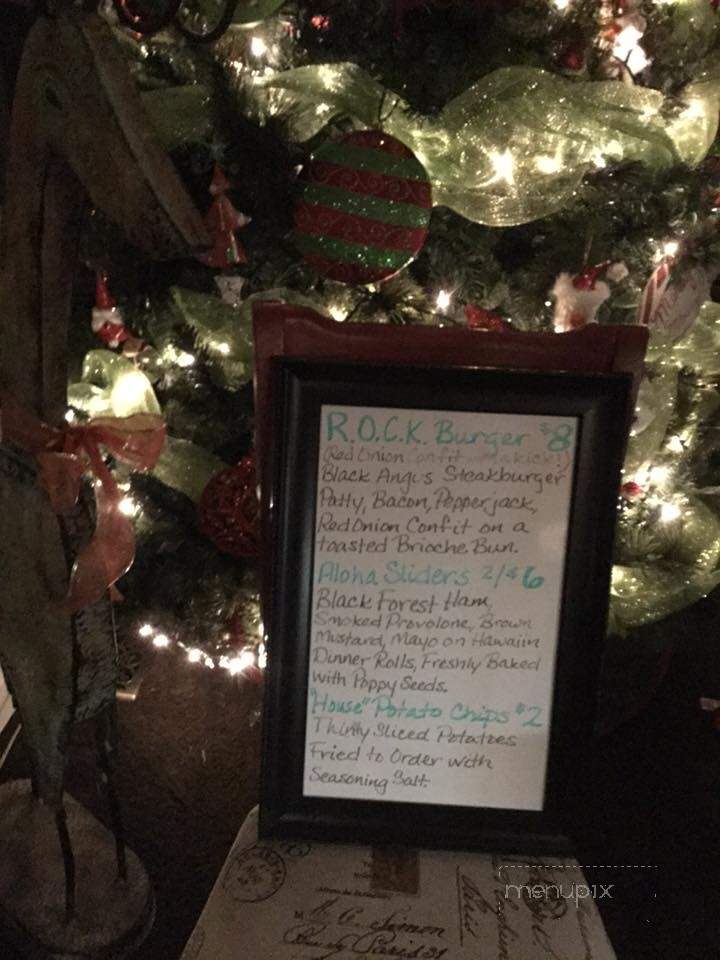 R.O.C.K. Burger $8
(Red Onion Confit kick!)
Black Angus Steakburger
Patty, Bacon, Pepperjack,
Red Onion Confit on a
toasted Brioche Bun.
Aloha Sliders 2/$6
Black Forest Ham,
Smoked Provolone, Brown
Mustard, Mayo on Hawaiin
Dinner Rolls, Freshly Baked
with Poppy Seeds.
"House" Potato Chips $2
Thinly Sliced Potatoes
Fried to Order with
Seasoning Salt.
menupix
Simon
Paris